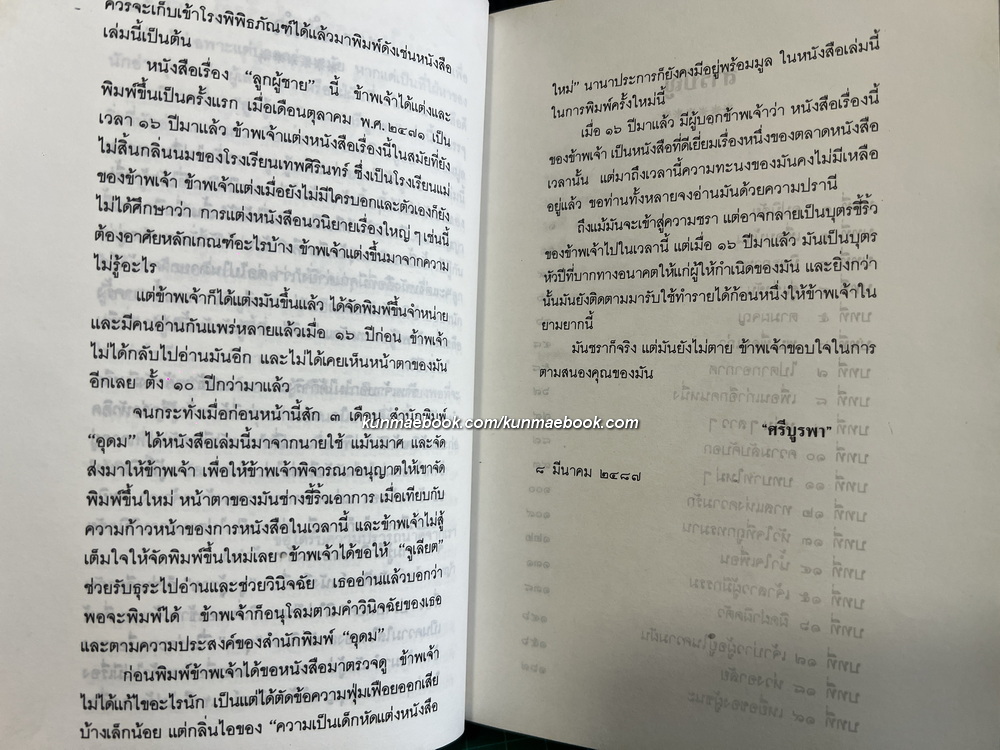 ควรจะเก็บเข้าโรงพิพิธภัณฑ์ได้แล้วมาพิมพ์ดังเช่นหนังสือ
เล่มนี้เป็นต้น
หนังสือเรื่อง “ลูกผู้ชาย” นี้ ข้าพเจ้าได้แต่งและ
พิมพ์ขึ้นเป็นครั้งแรก เมื่อเดือนตุลาคม พ.ศ.๒๔๗๑ เป็น
เวลา ๑๖ ปีมาแล้ว ข้าพเจ้าแต่งหนังสือเรื่องนี้ในสมัยที่ยัง
ไม่สิ้นกลิ่นนมของโรงเรียนเทพศิรินทร์ ซึ่งเป็นโรงเรียนแม่
ของข้าพเจ้า ข้าพเจ้าแต่งเมื่อยังไม่มีใครบอกและตัวเองก็ยัง
ไม่ได้ศึกษาว่า การแต่งหนังสือนวนิยายเรื่องใหญ่ ๆ เช่นนี้
ต้องอาศัยหลักเกณฑ์อะไรบ้าง ข้าพเจ้าแต่งขึ้นมาจากความ
ไม่รู้อะไร
แต่ข้าพเจ้าก็ได้แต่งมันขึ้นแล้ว ได้จัดพิมพ์ขึ้นจำหน่าย
และมีคนอ่านกันแพร่หลายแล้วเมื่อ ๑๖ ปีก่อน ข้าพเจ้า
ไม่ได้กลับไปอ่านมันอีก และไม่ได้เคยเห็นหน้าตาของมัน
อีกเลย ตั้ง ๑๐ ปีกว่ามาแล้ว
จนกระทั่งเมื่อก่อนหน้านี้สัก ๓ เดือน สำนักพิมพ์
“อุดม” ได้หนังสือเล่มนี้มาจากนายใช้ แม้นมาศ และจัด
ส่งมาให้ข้าพเจ้า เพื่อให้ข้าพเจ้าพิจารณาอนุญาตให้เขาจัด
พิมพ์ขึ้นใหม่ หน้าตาของมันช่างขี้ริ้วเอาการ เมื่อเทียบกับ
ความก้าวหน้าของการหนังสือในเวลานี้ และข้าพเจ้าไม่สู้
เต็มใจให้จัดพิมพ์ขึ้นใหม่เลย ข้าพเจ้าได้ขอให้ “จูเลียต”
ช่วยรับธุระไปอ่านและช่วยวินิจฉัย เธออ่านแล้วบอกว่า
พอจะพิมพ์ได้ ข้าพเจ้าก็อนุโลมตามคำวินิจฉัยของเธอ
และตามความประสงค์ของสำนักพิมพ์ “อุดม”
ก่อนพิมพ์ข้าพเจ้าได้ขอหนังสือมาตรวจดู ข้าพเจ้า
ไม่ได้แก้ไขอะไรนัก เป็นแต่ได้ตัดข้อความฟุ่มเฟือยออกเสีย
บ้างเล็กน้อย แต่กลิ่นไอของ “ความเป็นเด็กหัดแต่งหนังสือ
ใหม่” นานาประการก็ยังคงมีอยู่พร้อมมูล ในหนังสือเล่มนี้
ในการพิมพ์ครั้งใหม่นี้
เมื่อ ๑๖ ปีมาแล้ว มีผู้บอกข้าพเจ้าว่า หนังสือเรื่องนี้
ของข้าพเจ้า เป็นหนังสือที่ดีเยี่ยมเรื่องหนึ่งของตลาดหนังสือ
เวลานั้น แต่มาถึงเวลานี้ความทะนงของมันคงไม่มีเหลือ
อยู่แล้ว ขอท่านทั้งหลายจงอ่านมันด้วยความปรานี
ถึงแม้มันจะเข้าสู่ความชรา แต่อาจกลายเป็นบุตรขี้ริ้ว
ของข้าพเจ้าไปในเวลานี้ แต่เมื่อ ๑๖ ปีมาแล้ว มันเป็นบุตร
หัวปีที่บากทางอนาคตให้แก่ผู้ให้กำเนิดของมัน และยิ่งกว่า
นั้นมันยังติดตามมารับใช้ทำรายได้ก้อนหนึ่งให้ข้าพเจ้าใน
ยามยากนี้
มันชราก็จริง แต่มันยังไม่ตาย ข้าพเจ้าขอบใจในการ
ตามสนองคุณของมัน
“ศรีบูรพา”
๘ มีนาคม ๒๔๘๗
kunmaebook.com/kunmaebook.com